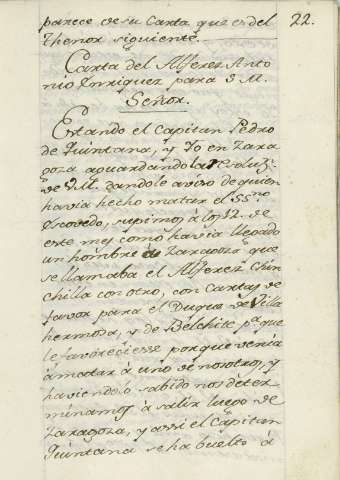 22.
parece de su Carta que es del
thenor siguiente.
Carta del Alferez Anto
nio Enriquez para S M.
Señor.
Estando el Capitan Pedro
de Quintana, y Yo en Zara
goza aguardando la resoluz.ⁿ
de V.M. dandole aviso de quien
havia hecho matar el SS.ʳⁱᵒ
Escovedo, supimos à los 12. de
este mes como havia llegado
un hombre à Zaragoza que
se llamaba el Alferez Chin
chilla con otro, con Cartas de
favor para el Duque de Villa
hermosa, y de Belchite p.ª que
le favoreciesse porque venia
à matar à uno de nosotros, y
haviendolo sabido nos deter
minamos à salir luego de
Zaragoza, y assi el Capitan
Quintana se ha buelto à